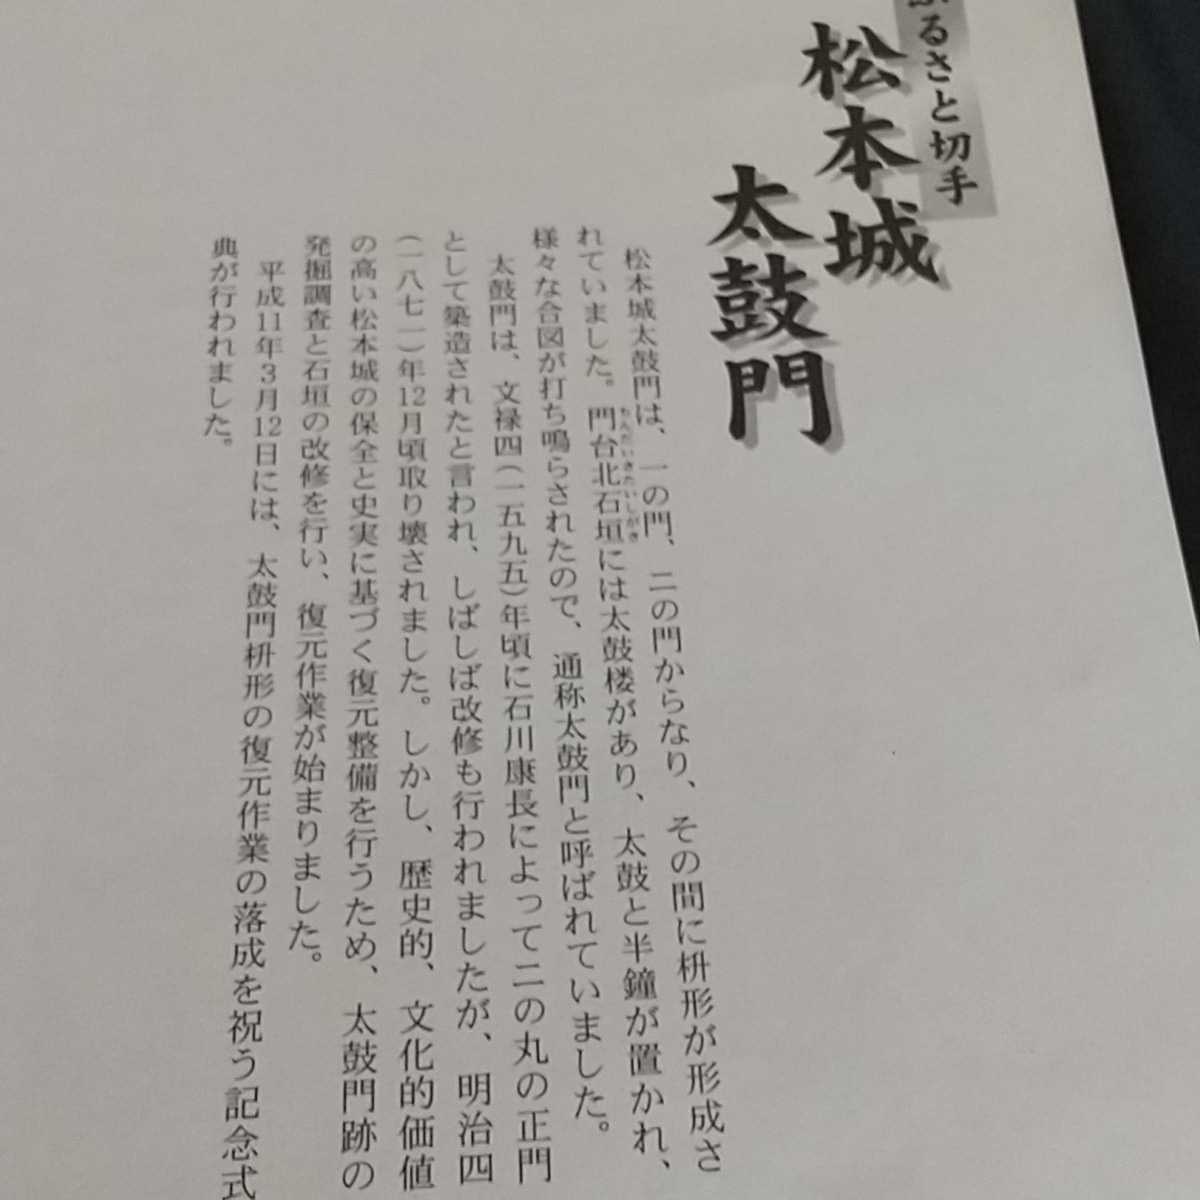 ふるさと切手
松本城
太鼓門
松本城太鼓門は、一の門、二の門からなり、その間に枡形が形成さ
れていました。門台北石垣には太鼓楼があり、太鼓と半鐘が置かれ、
もんだいきたいしがき
様々な合図が打ち鳴らされたので、通称太鼓門と呼ばれていました。
太鼓門は、文禄四(一五九五)年頃に石川康長によって二の丸の正門
として築造されたと言われ、しばしば改修も行われましたが、明治四
(一八七一)年12月頃取り壊されました。しかし、歴史的、文化的価値
の高い松本城の保全と史実に基づく復元整備を行うため、太鼓門跡の
発掘調査と石垣の改修を行い、復元作業が始まりました。
平成11年3月12日には、太鼓門枡形の復元作業の落成を祝う記念式
典が行われました。